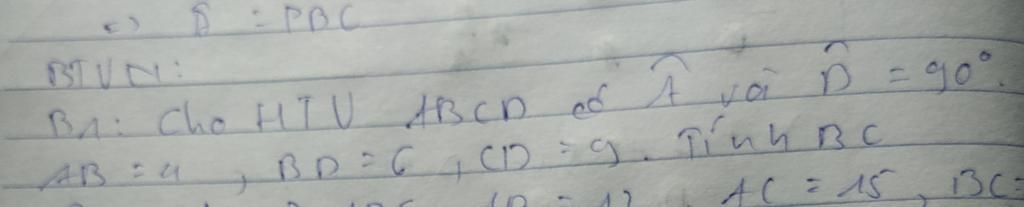 c) D̂ = PBC
BTVN:
B1: Cho HTV ABCD có Â và D̂ = 90°.
AB = 4, BD = 6, CD = 9. Tính BC
AC = 15, BC =